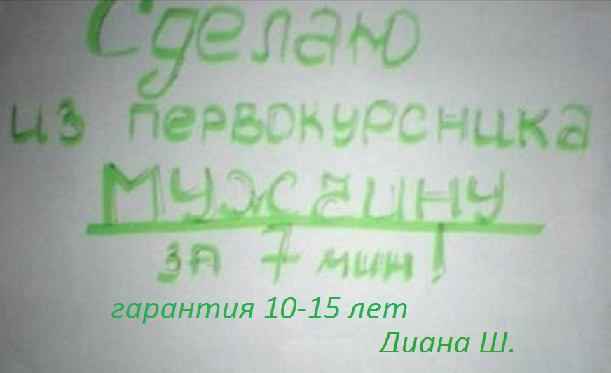 Сделаю
из первокурсника
мужчину
за 7 мин!
гарантия 10-15 лет
Диана Ш.